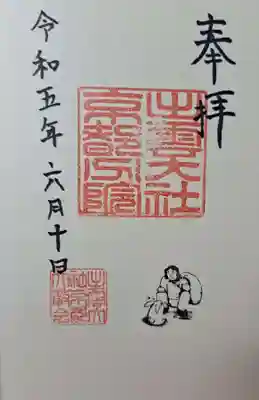 奉拝
出雲大社
京都分院
令和五年六月十日